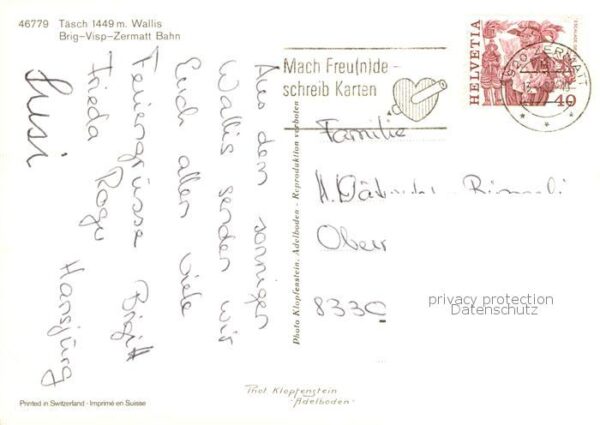 46779 Täsch 1449 m. Wallis
Brig-Visp-Zermatt Bahn
Aus dem sonnigen
Wallis senden wir
Euch allen viele
Feriengrüsse Birgitt
Frieda Roger Hansjürg
Susi
Photo Klopfenstein, Adelboden - Reproduktion verboten
Mach Freu(n)de -
schreib Karten
HELVETIA
40
3920 ZERMATT
Familie
Ober
8330
privacy protection
Datenschutz
Phot Klopfenstein
-Adelboden-
Printed in Switzerland - Imprimé en Suisse